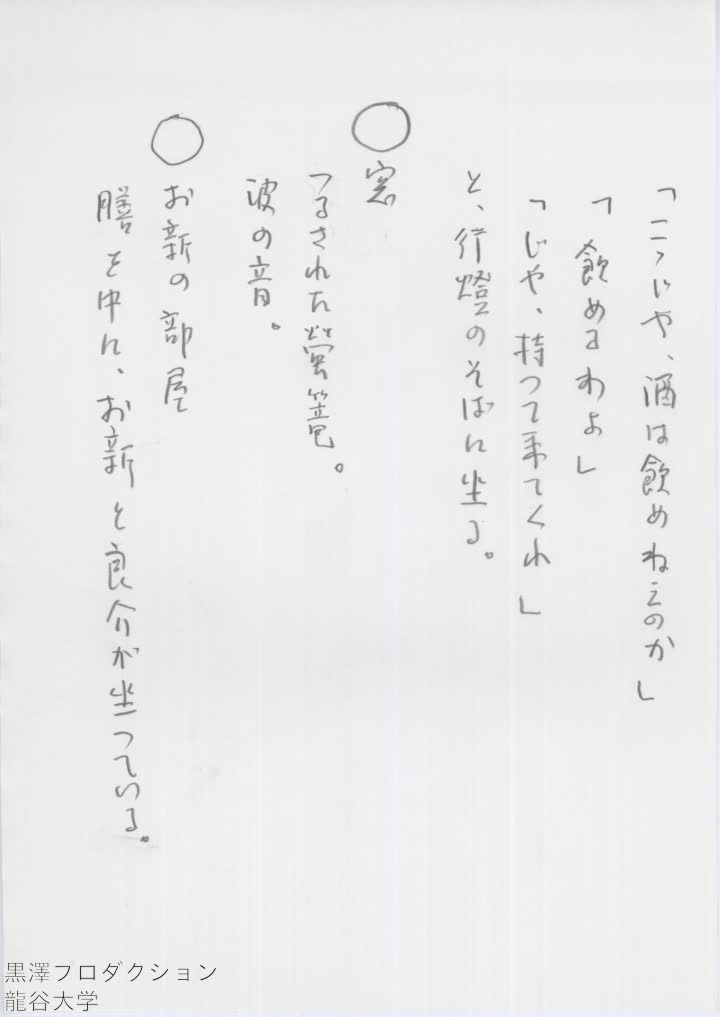 「こゝじや、酒は飲めねえのか」
「飲めるわよ」
「じや、持つて来てくれ」
と、行燈のそばに坐る。
○窓
つるされた螢篭。
波の音。
○お新の部屋
膳を中に、お新と良介が坐つている。
黒澤プロダクション
龍谷大学